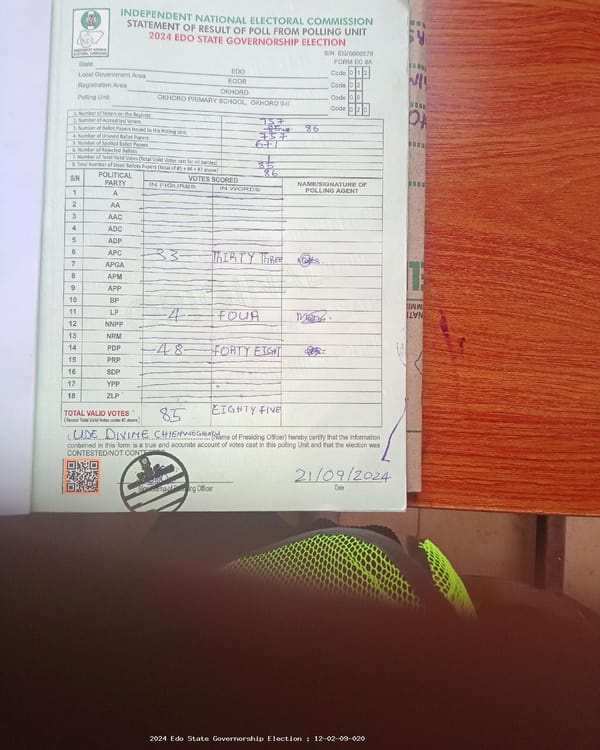 INDEPENDENT NATIONAL ELECTORAL COMMISSION
STATEMENT OF RESULT OF POLL FROM POLLING UNIT
2024 EDO STATE GOVERNORSHIP ELECTION
FORM EC 8A
State EDO Code 0 1 2
Local Government Area EGOR Code 0 2
Registration Area OKHORO Code 0 9
Polling Unit OKHORO PRIMARY SCHOOL, OKHORO Code 0 2 0
1. Number of Voters on the Register 757
2. Number of Accredited Voters 86
3. Number of Ballot Papers Issued to the Polling Unit 757
4. Number of Unused Ballot Papers 671
5. Number of Spoiled Ballot Papers
6. Number of Rejected Ballots 1
7. Number of Total Valid Votes (Total Valid Votes cast for all parties) 85
8. Total Number of Used Ballots Papers (Total of #5 + #6 + #7 above) 86
S/N POLITICAL PARTY VOTES SCORED NAME/SIGNATURE OF POLLING AGENT
IN FIGURES IN WORDS
1 A
2 AA
3 AAC
4 ADC
5 ADP
6 APC 33 THIRTY THREE
7 APGA
8 APM
9 APP
10 BP
11 LP 4 FOUR
12 NNPP
13 NRM
14 PDP 48 FORTY EIGHT
15 PRP
16 SDP
17 YPP
18 ZLP
TOTAL VALID VOTES 85 EIGHTY FIVE
(Record Total Valid Votes under #7 above)
I, UDE DIVINE (Name of Presiding Officer) hereby certify that the information
contained in this form is a true and accurate account of votes cast in this polling Unit and that the election was
CONTESTED/NOT CONTESTED
21/09/2024
Date
2024 Edo State Governorship Election : 12-02-09-020